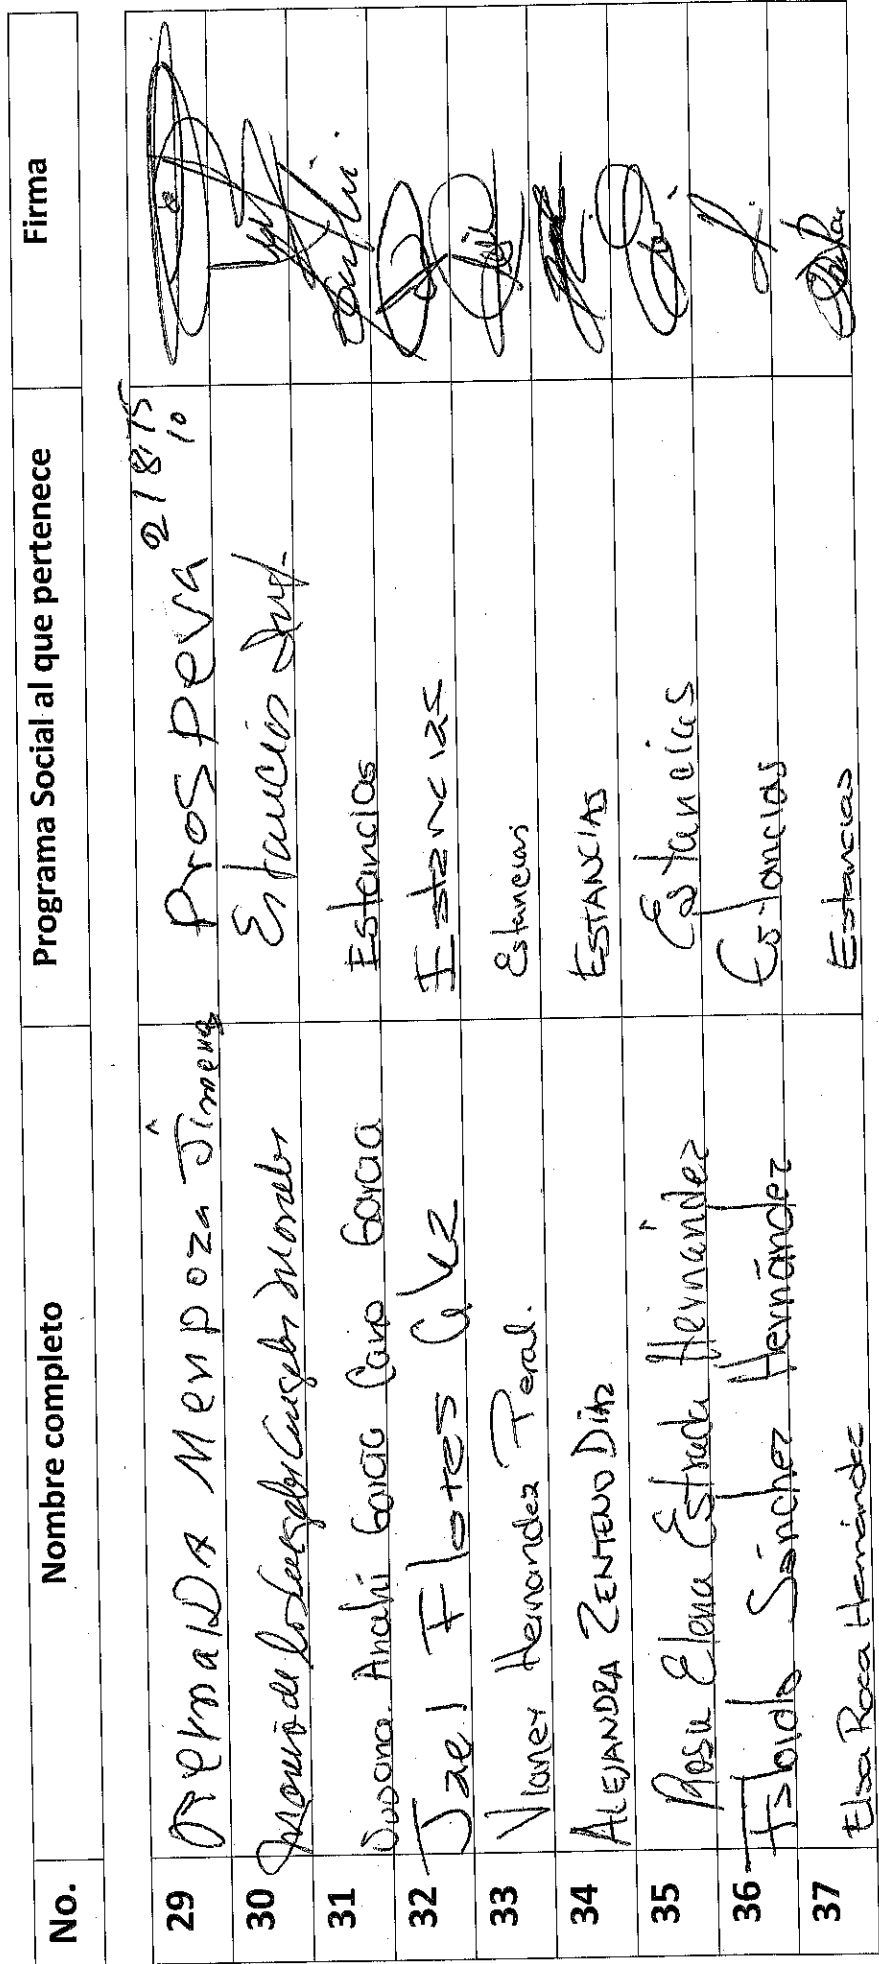 No. Nombre completo Programa Social al que pertenece Firma
29 MenDoza Jimenez Prospera 21875 10
30 Maria de los Angeles Morales Estancias Inf.
31 Susana Anahi Garcia Cano Garcia Estancias
32 Jael Flores Estancias
33 Vianey Hernandez Peral. Estancias
34 ALEJANDRA ZENTENO DIAZ ESTANCIAS
35 Rosa Elena Estrada Hernández Estancias
36 Sánchez Hernández Estancias
37 Elsa Roca Hernández Estancias